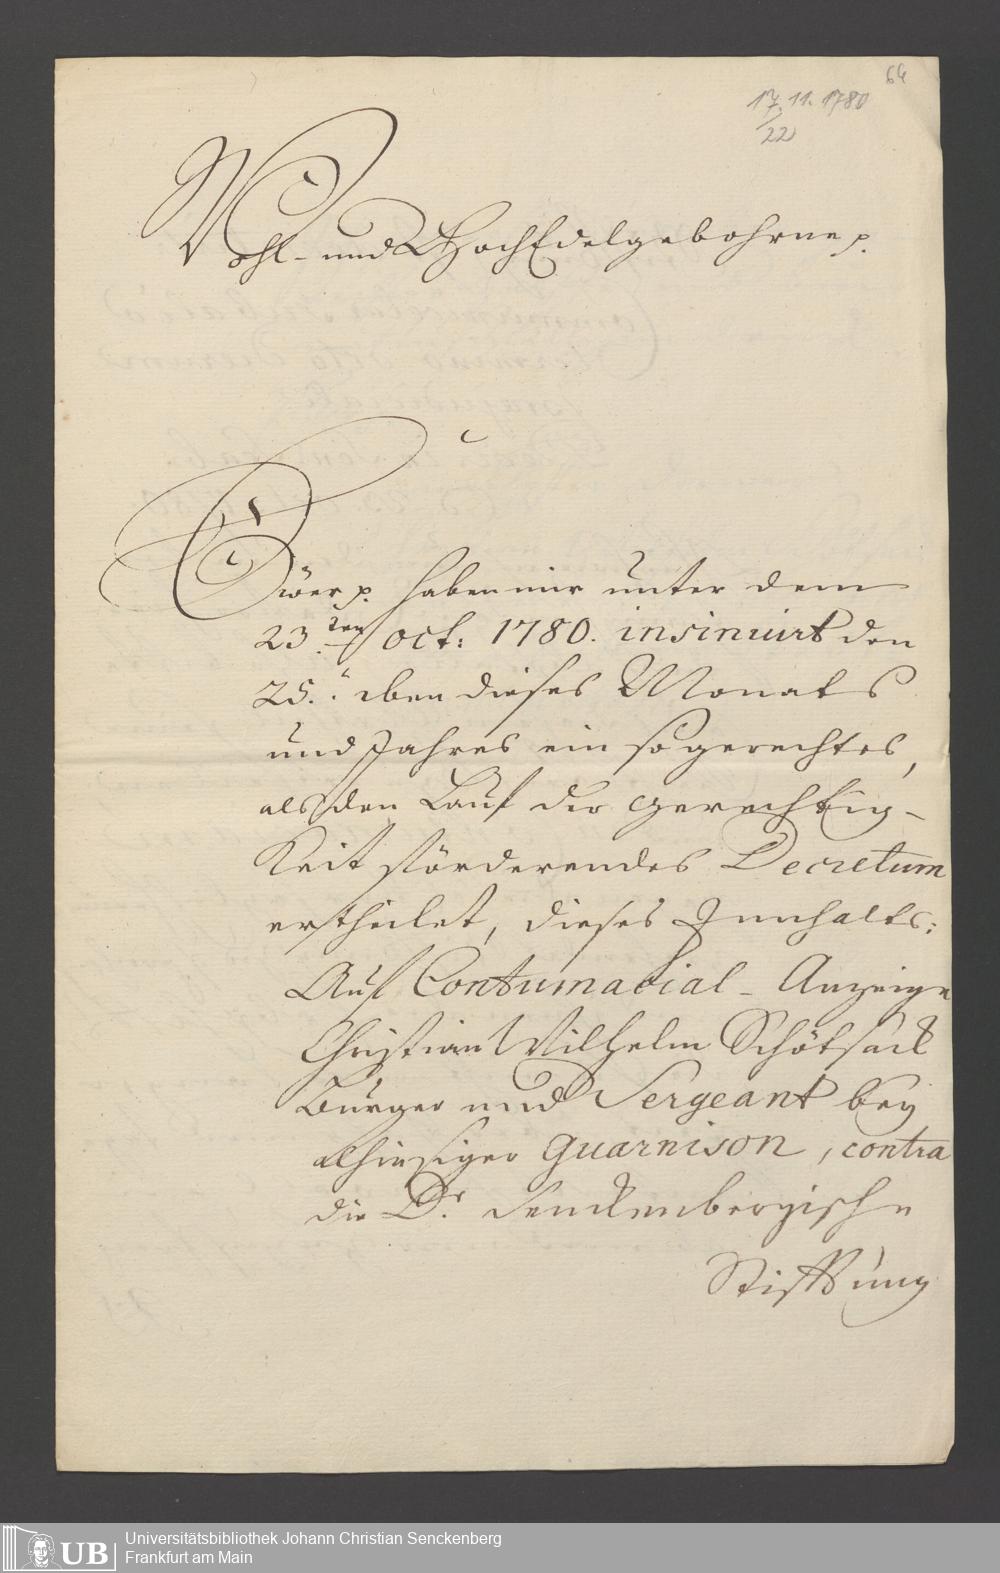 64
17. 11. 1780
22
Wohl- und HochEdelgebohrne p.
Ewer p. haben mir unter dem
23.ten Oct: 1780. insinuirt den
25.n eben dieses Monats
und Jahres ein so gerechtes,
als den Lauf der Gerechtig-
keit förderendes Decretum
ertheilet, dieses Innhalts:
Auf Contumacial-Anzeige
Christian Wilhelm Schötsack
Burger und Sergeant bey
alhiesiger Guarnison, contra
die Dr. Senckenbergische
Stiftung
UB
Universitätsbibliothek Johann Christian Senckenberg
Frankfurt am Main